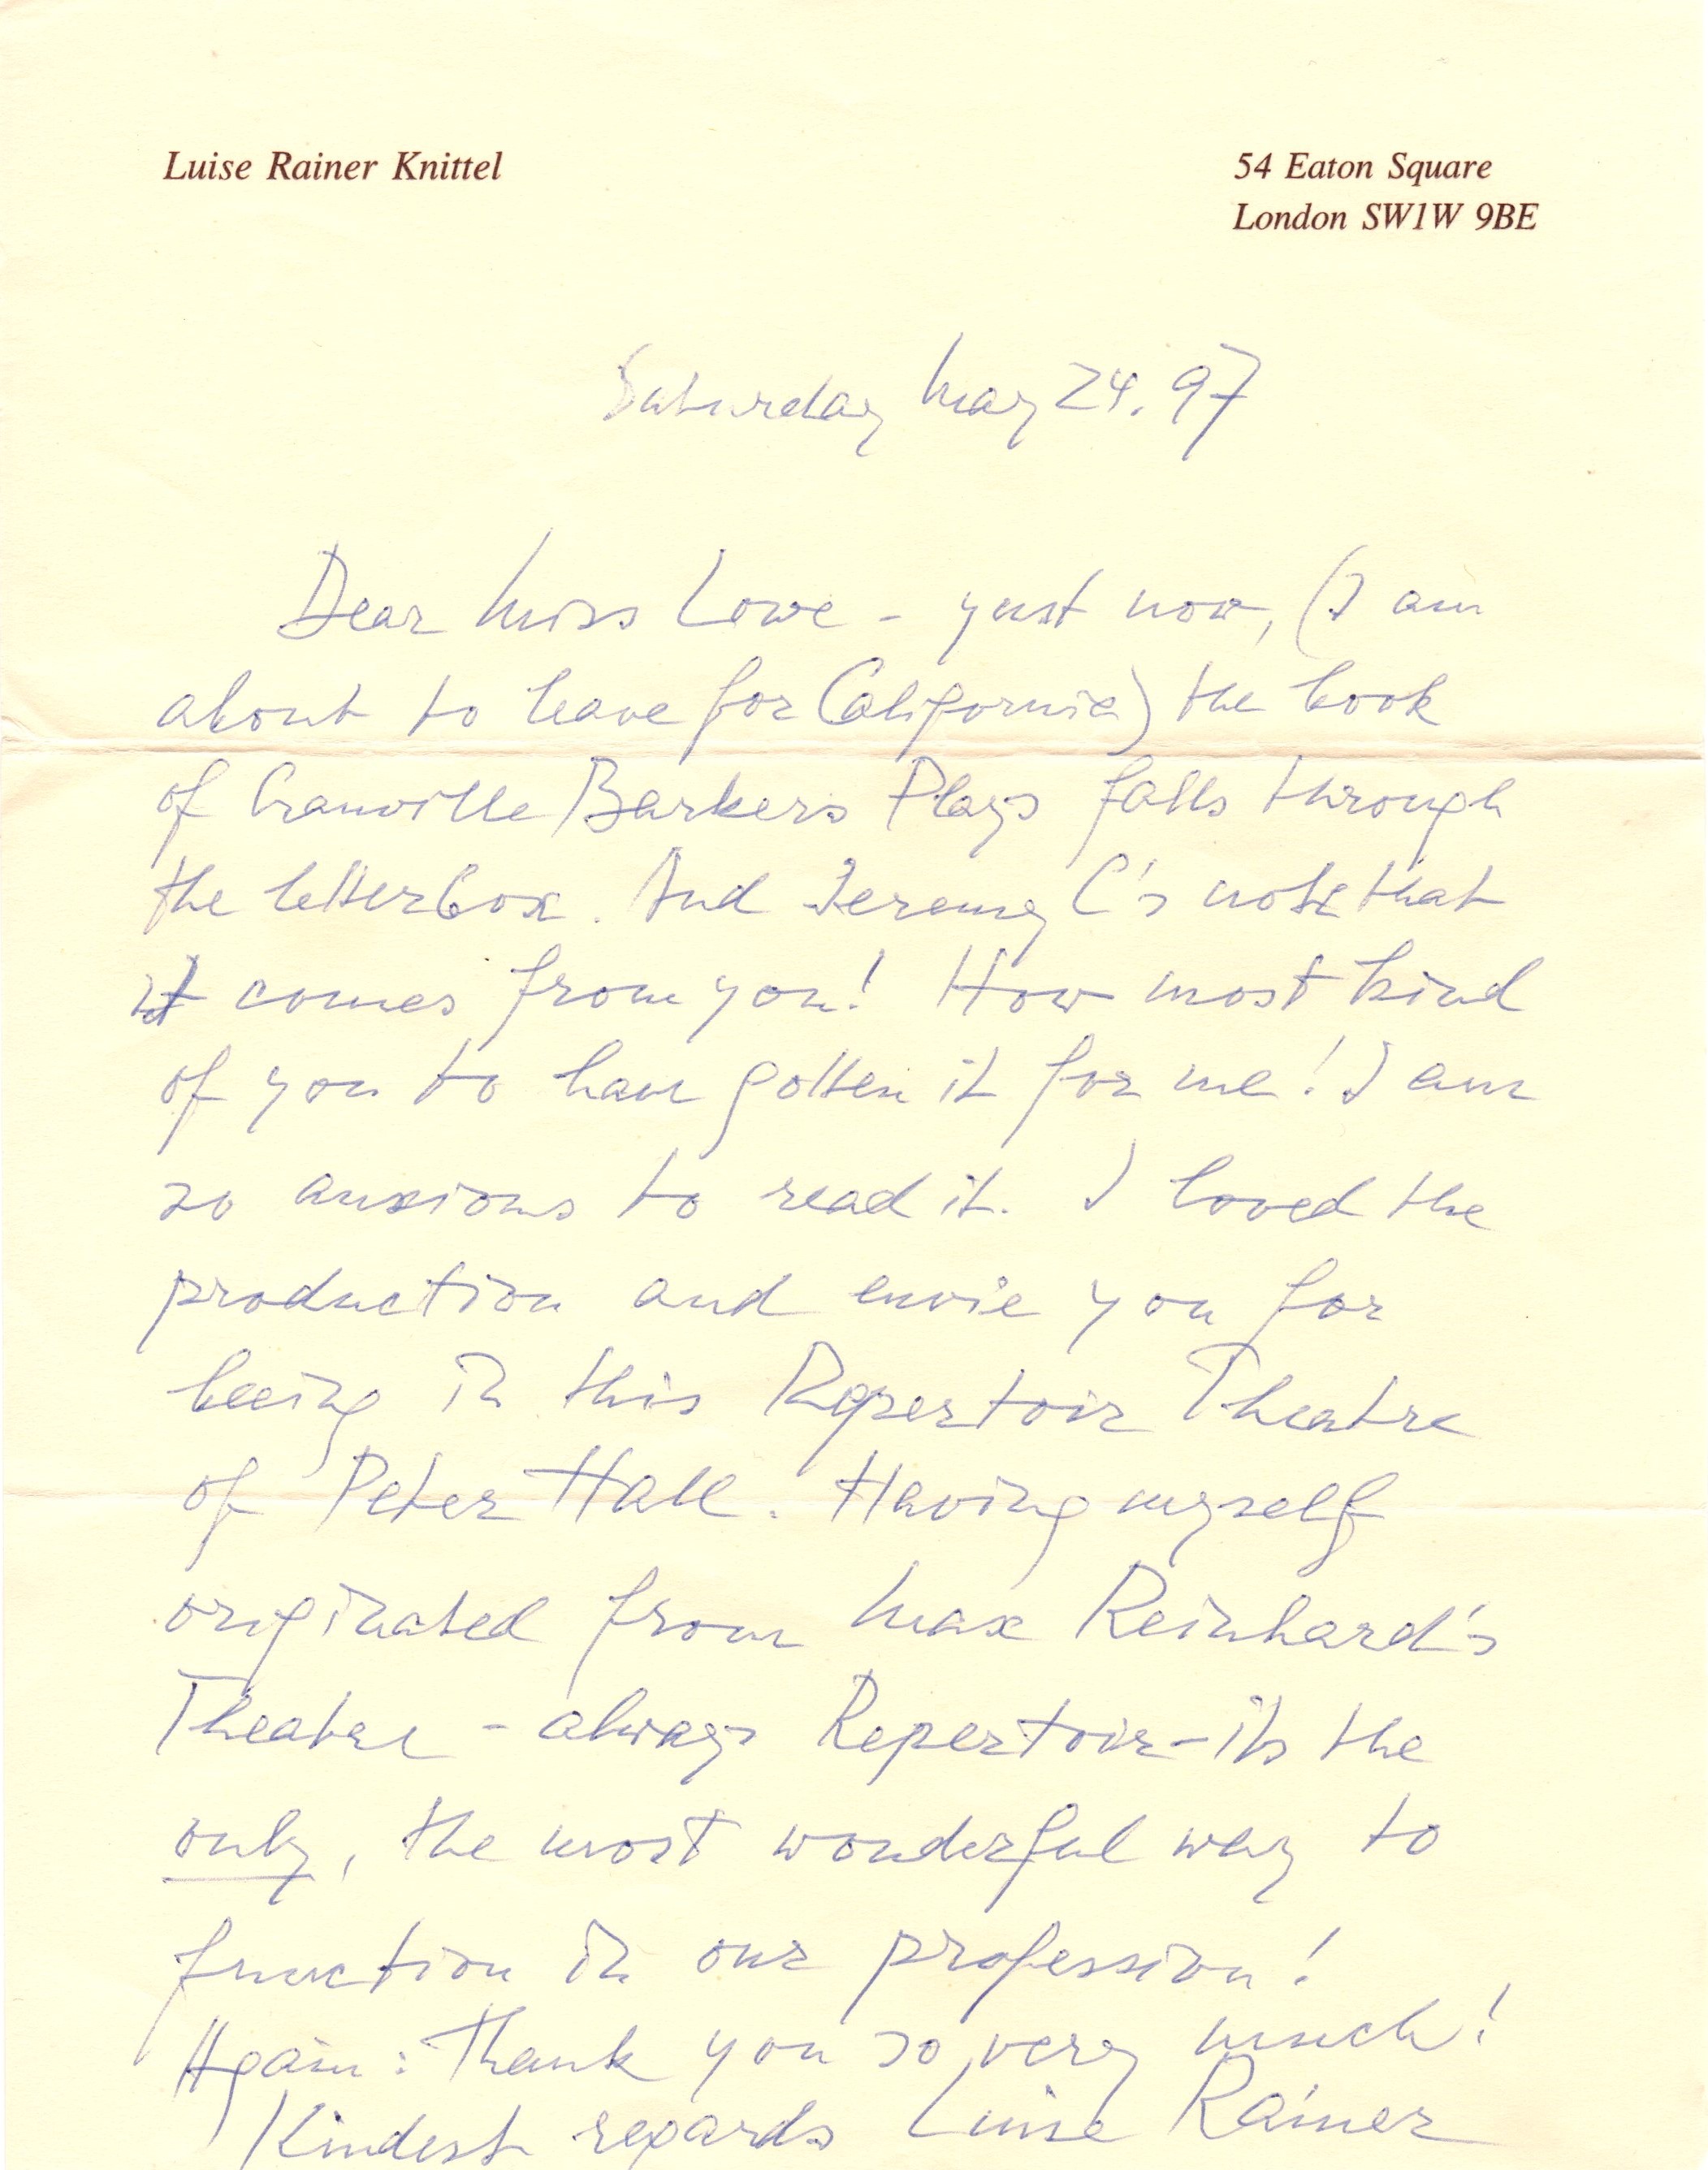 Luise Rainer Knittel
54 Eaton Square
London SW1W 9BE
Saturday May 24. 97
Dear Miss Lowe - yust now, (I am
about to leave for California) the book
of Granville Barkers Plays falls through
the letterbox. And Jeremy C's note that
it comes from you! How most kind
of you to have gotten it for me! I am
so anxious to read it. I loved the
production and envie you for
beeing in this Repertoir Theatre
of Peter Hall. Having myself
originated from Max Reinhard's
Theatre - always Repertoir - its the
only, the most wonderful way to
function in our profession!
Again: Thank you so very much!
Kindest regards Luise Rainer